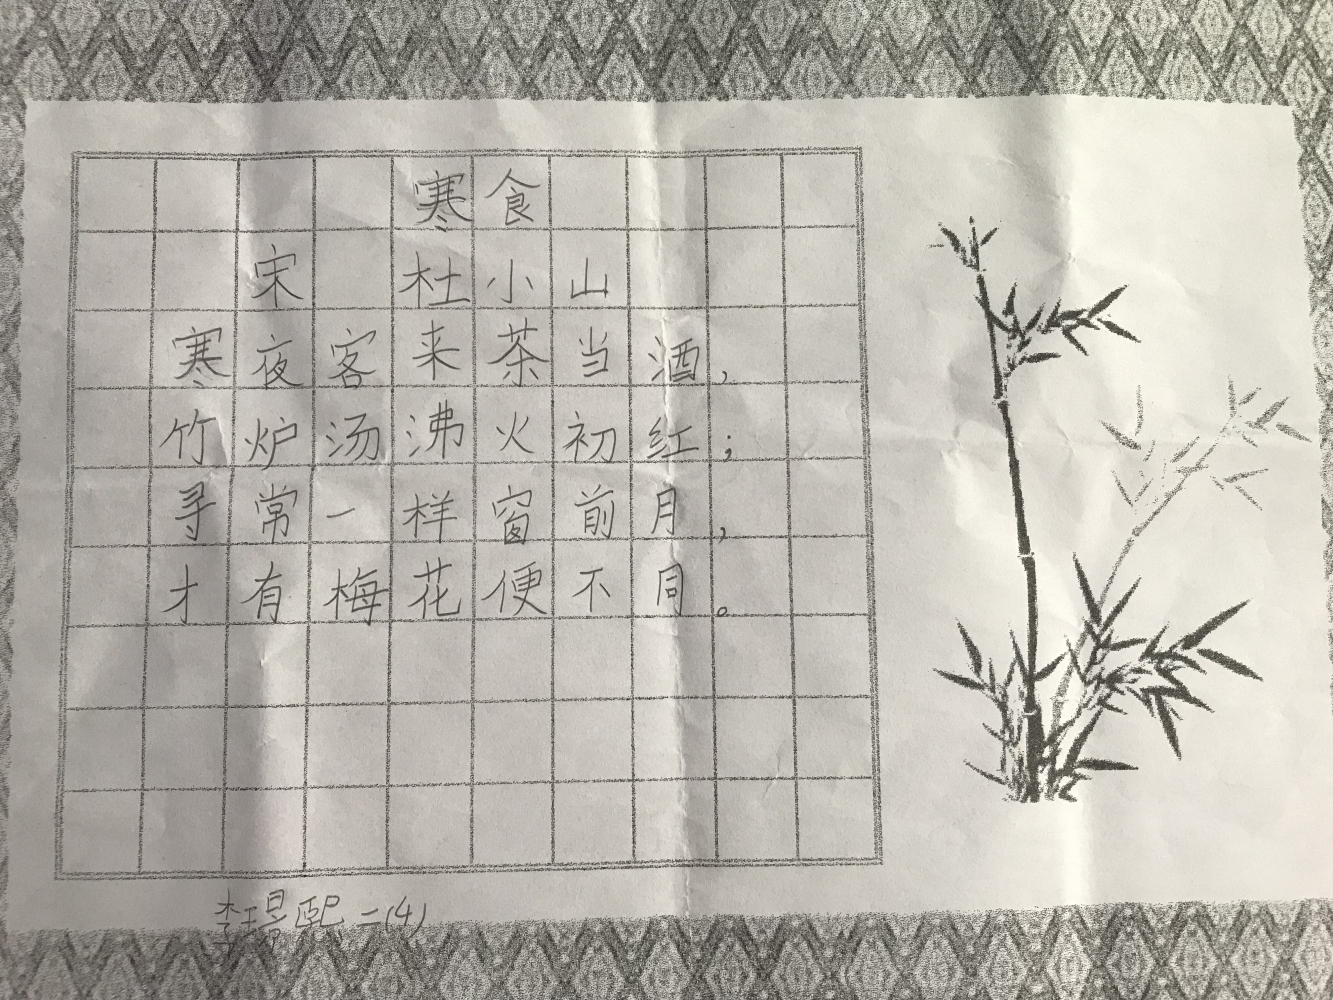 寒食
宋 杜小山
寒夜客来茶当酒，
竹炉汤沸火初红；
寻常一样窗前月，
才有梅花便不同。
李 二(4)